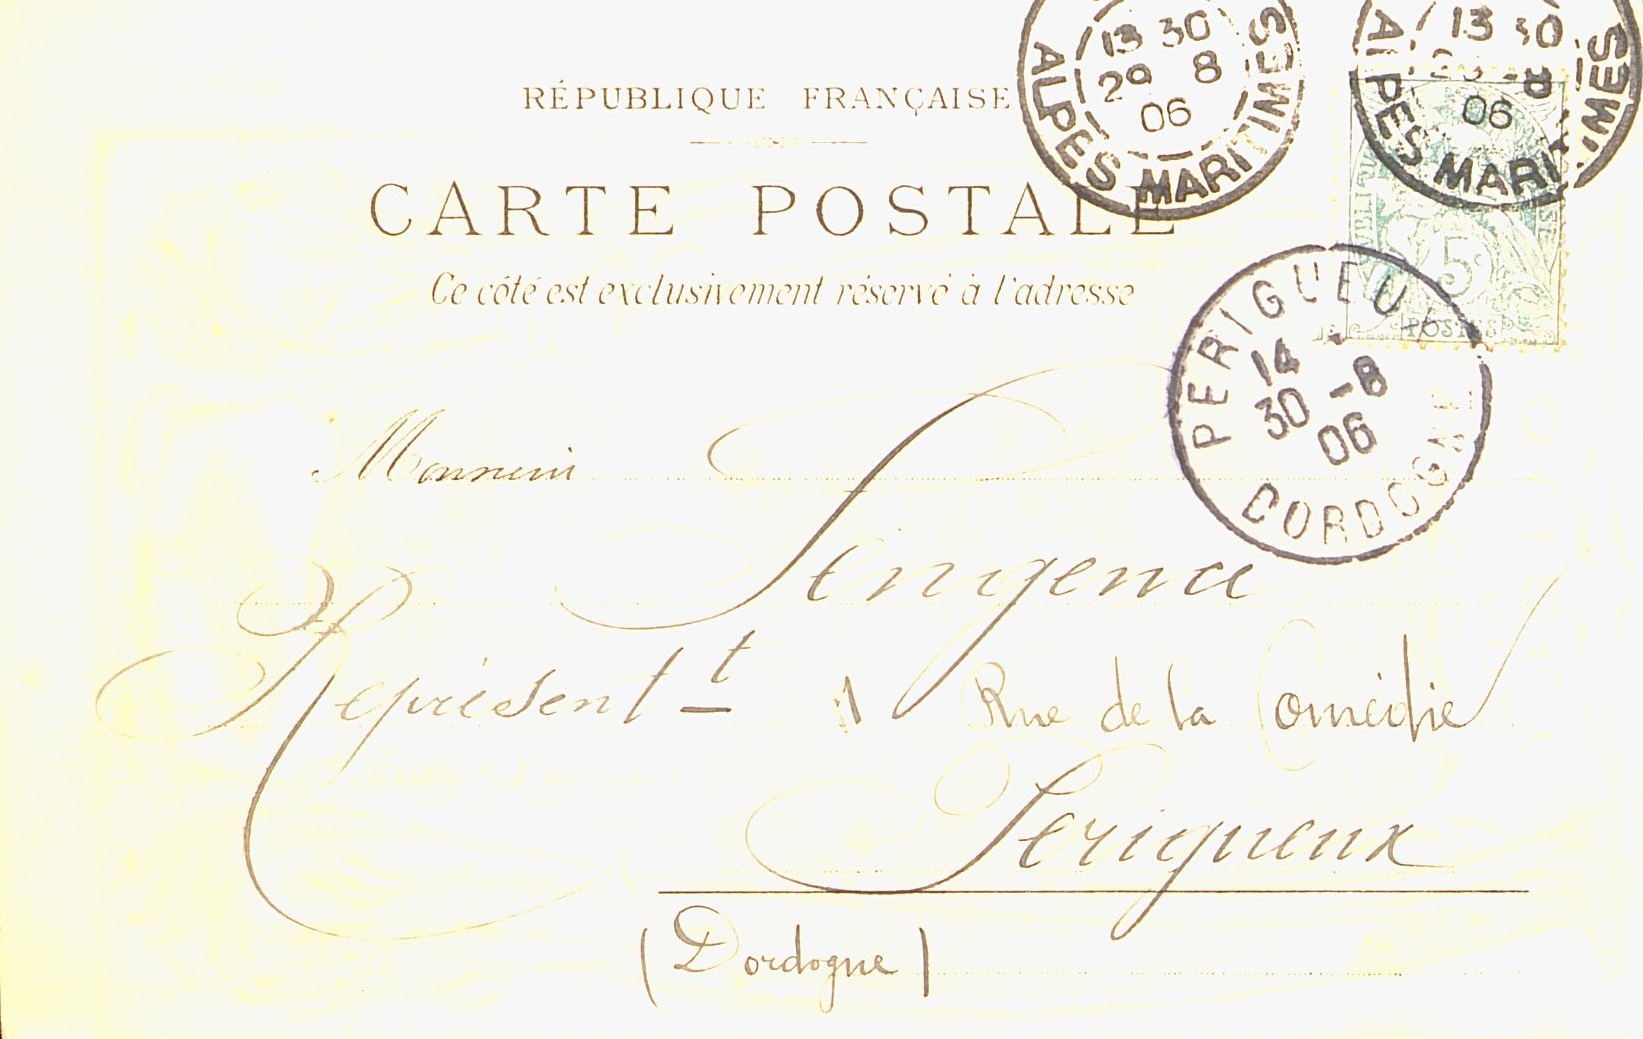 RÉPUBLIQUE FRANÇAISE
CARTE POSTALE
Ce côté est exclusivement réservé à l'adresse
13 30
29 8
06
ALPES MARITIMES
13 30
8
06
ALPES MARITIMES
5c
POSTES
PERIGUEUX
14
30 -8
06
DORDOGNE
Monsieur
Sengence
Représent t 1 Rue de la Comédie
Perigueux
(Dordogne)